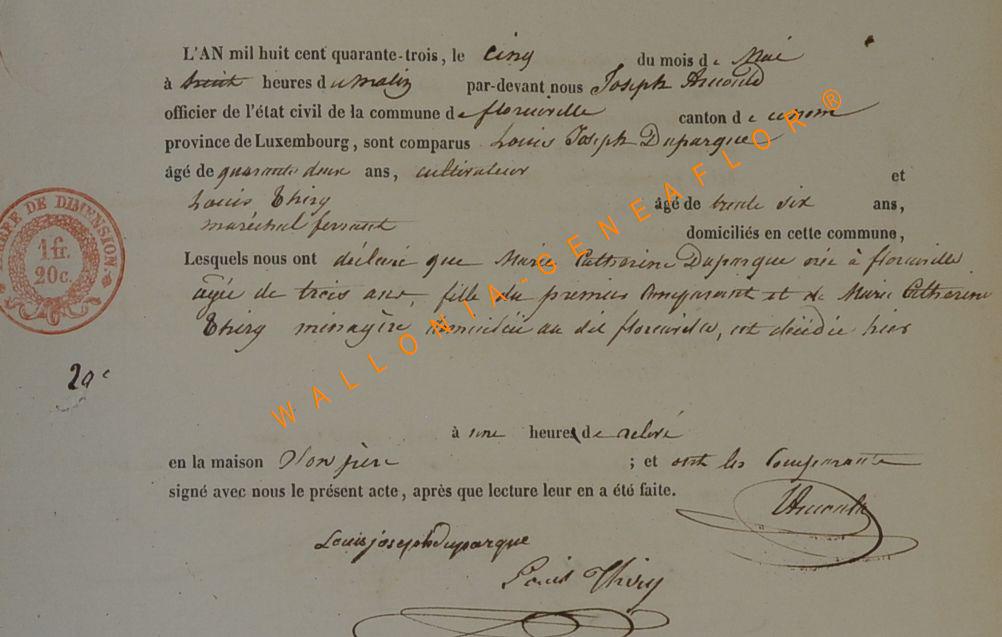 L'AN mil huit cent quarante-trois, le cinq du mois de Mai
à huit heures du matin par-devant nous Joseph Arnould
officier de l'état civil de la commune de florenville canton de
province de Luxembourg, sont comparus Louis Joseph Duparque
âgé de quarante deux ans, cultivateur et
Louis Thiry âgé de trente six ans,
maréchal ferrant domiciliés en cette commune,
Lesquels nous ont déclaré que Marie Catherine Duparque née à florenville
agée de trois ans, fille du premier Comparant et de Marie Catherine
Thiry ménagère domiciliée au dit florenville, est décédée hier
TIMBRE DE DIMENSION.
1 fr.
20c.
2o c
à une heure de relevé
en la maison son père ; et ont les Comparants
signé avec nous le présent acte, après que lecture leur en a été faite.
JArnould
Louis joseph duparque
Louis Thiry
WALLONIA-GENEAFLOR®